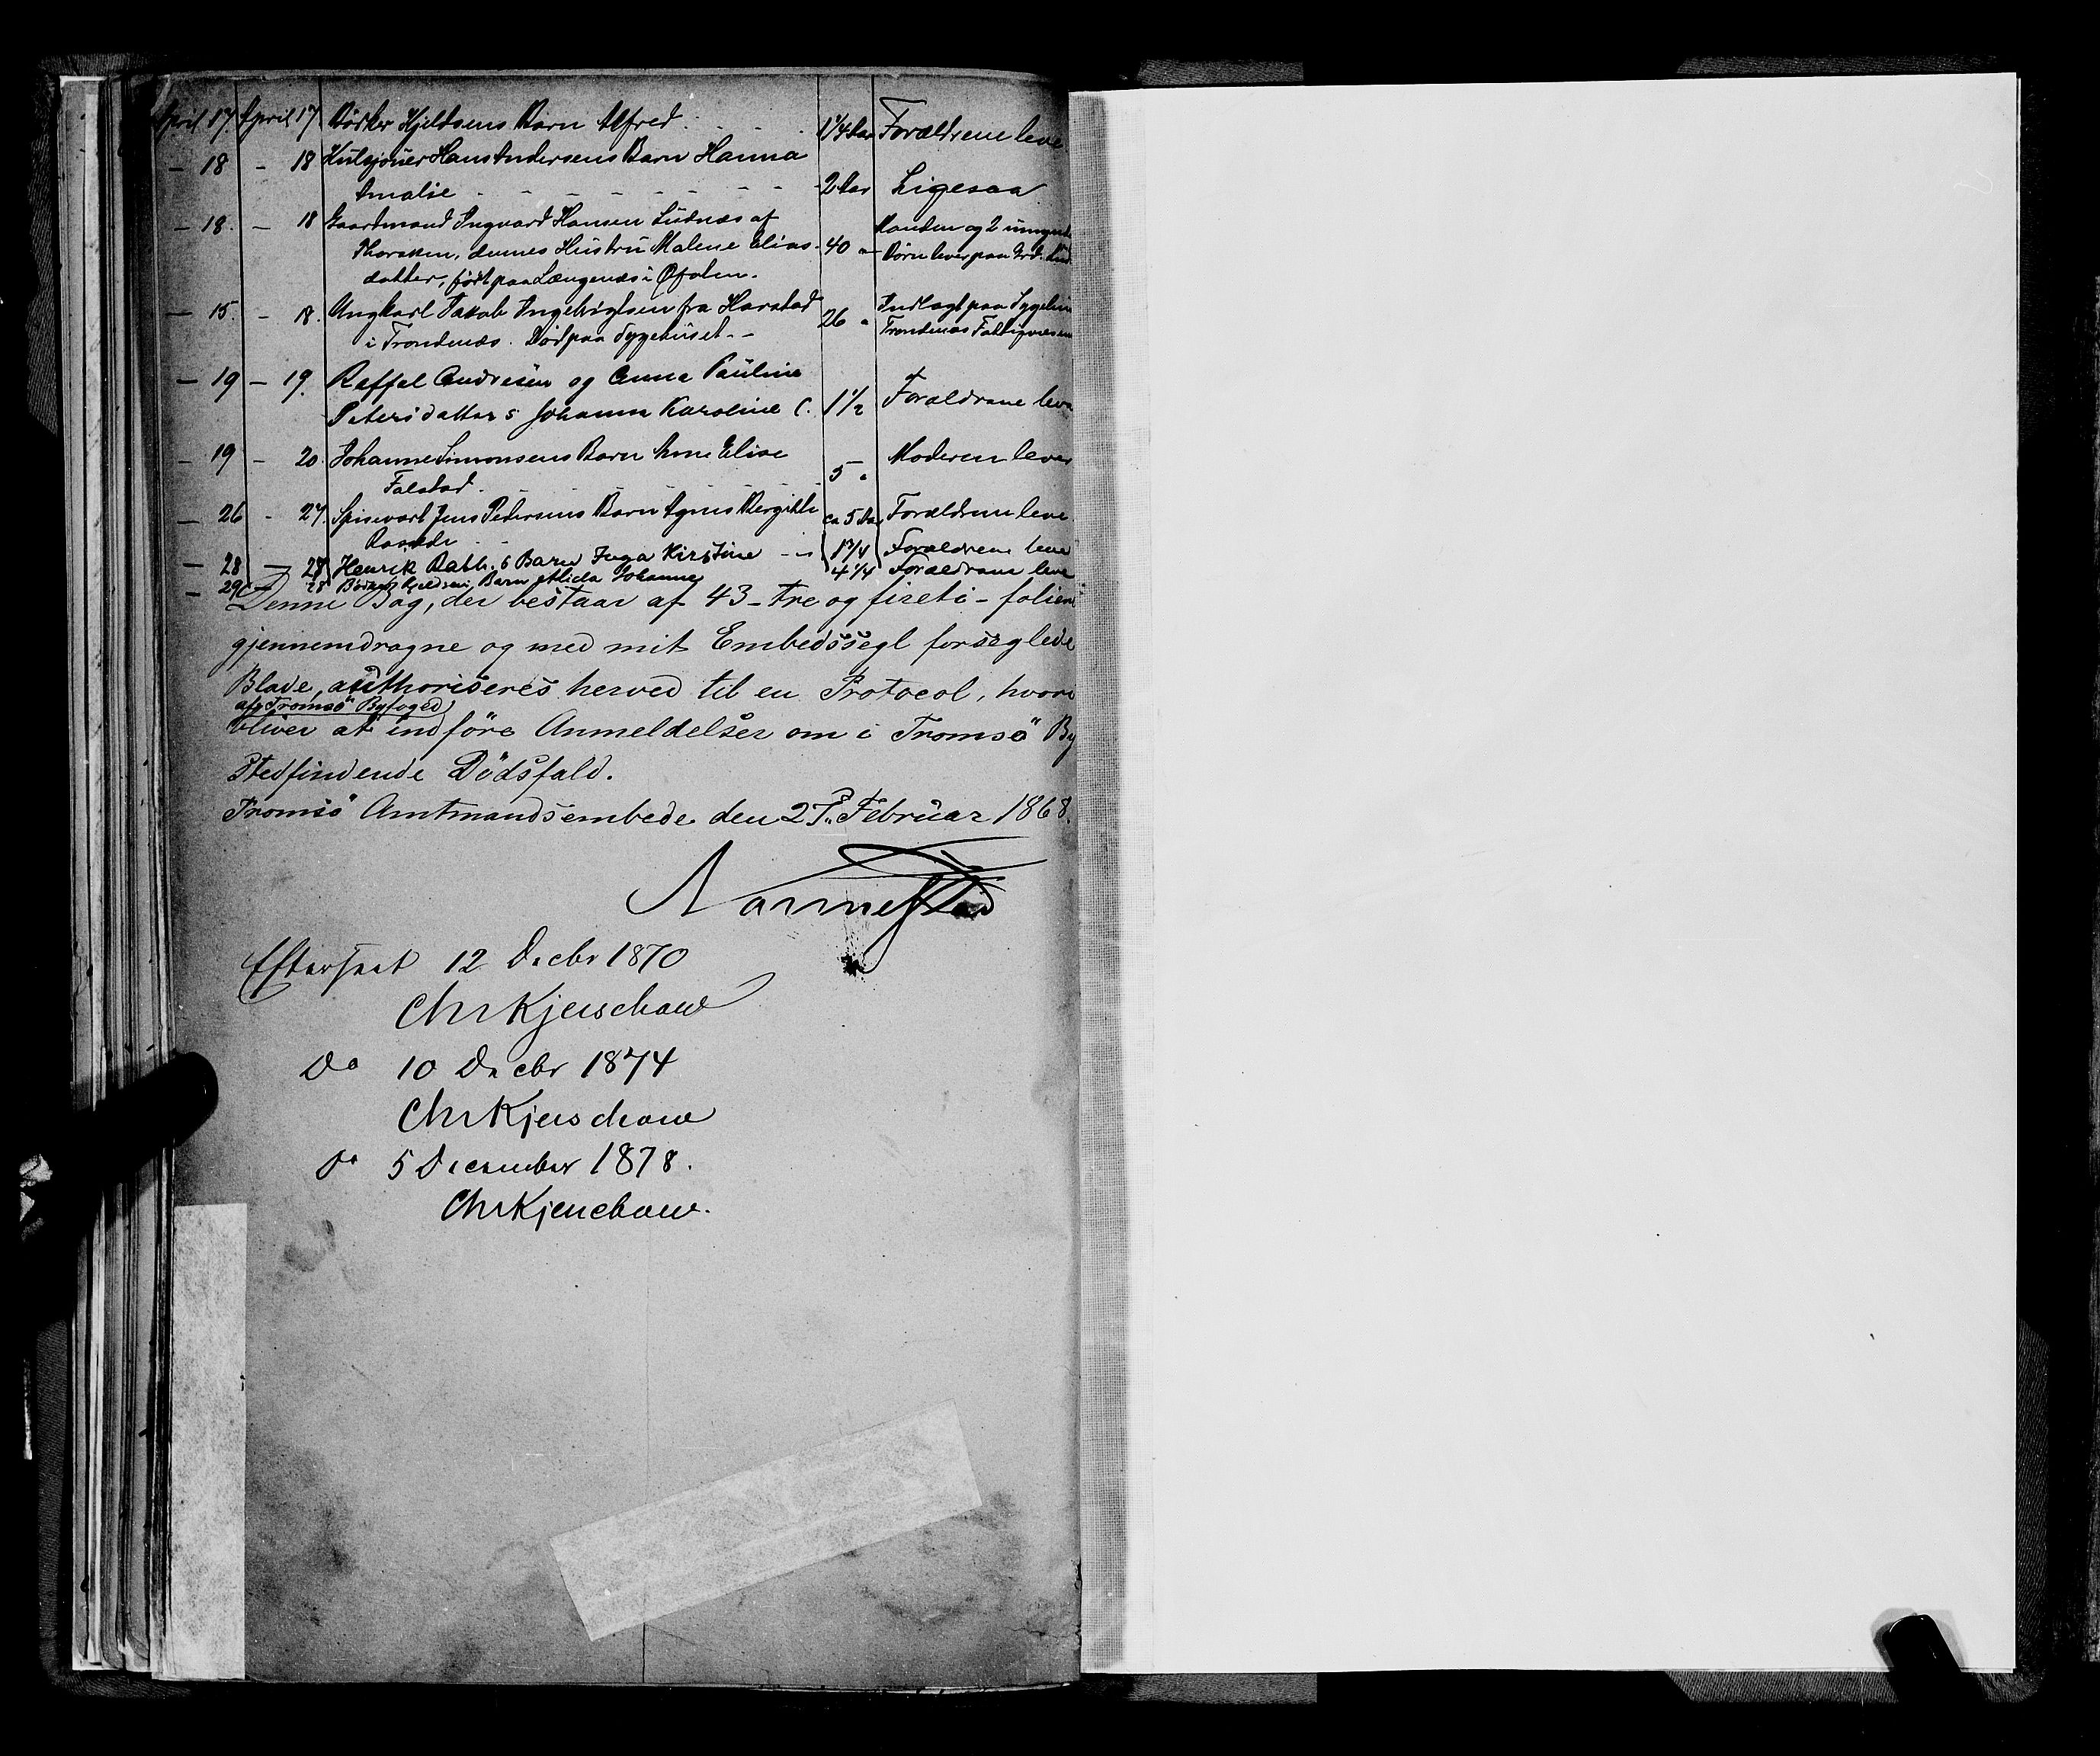 April 17 April 17 Bödker Kjeldsens Barn Alfred 1¼ Aar Forældrene leve
— 18 — 18 Hans Andersens Barn Hanna
Amalie 2 Aar Ligesaa
— 18. — 18 Gaardmand Ingvard Hansen Lüdnæs af
Thorsken, dennes Hustru Malene Elias- 40 " Manden og 2 
datter, født paa Længenæs i Ofoten. Børn lever paa
— 15. — 18. Ungkarl Jakob Ingebrigtsen fra Harstad 26 " Indlagt paa
i Trondenæs. Død paa Sygehuset — Trondenæs
— 19 — 19. Raffel Andresen og Anna Pauline
Petersdatters Johanna Karoline C. 1½ Forældrene leve
— 19 — 20. Johanne Simonsens Barn Anne Elise
Falstad 5 " Moderen lever
— 26 - 27. Spisevært Jens Pedersens Barn Agnes Bergithe ca 5 Aar Forældrene leve
— 28 — 28 Henrik Rath.s Barn Inga Kirstine 1¾ Forældrene leve
— 29 — 28 Bödker Kjeldsens Barn Alida Johanne 4¼ Forældrene leve
Denne Bog, der bestaar af 43 - tre og fireti - folierede
gjennemdragne og med mit Embedssegl forseglede
Blade, authoriseres herved til en Protocol, hvori
af Tromsö Byfoged
bliver at indföre Anmeldelser om i Tromsö By
Stedfindende Dödsfald.
Tromsö Amtmandsembede den 27. Februar 1868.
Nannestad
Efterseet 12 Decbr 1870
Chr Kjerschow
Do 10 Decbr 1874
Chr Kjerschow
Do 5 December 1878.
Chr Kjerschow.